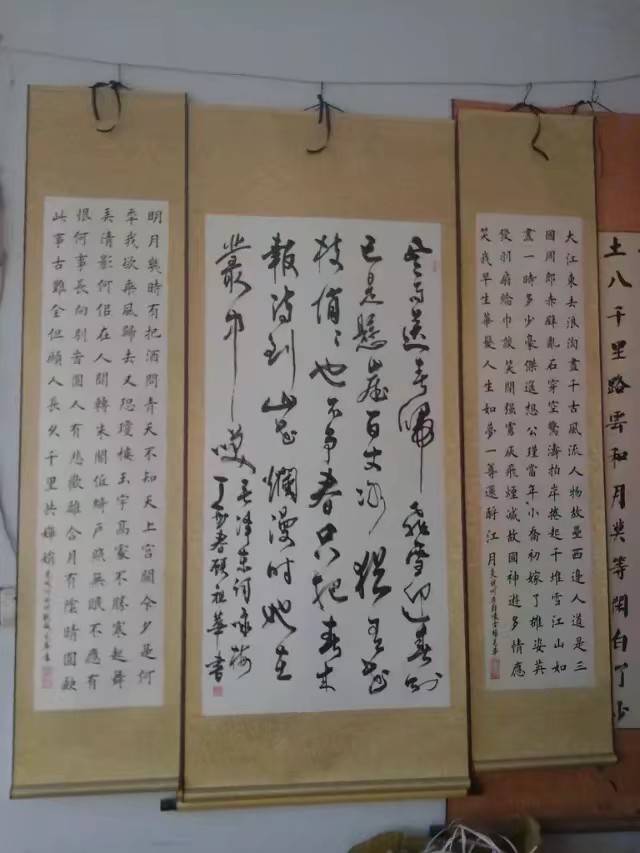 土八千里路雲和月莫等閑白了少
大江東去浪淘盡千古風流人物故壘西邊人道是三
國周郎赤壁亂石穿空驚濤拍岸捲起千堆雪江山如
畫一時多少豪傑遥想公瑾當年小喬初嫁了雄姿英
發羽扇綸巾談笑間强虜灰飛煙滅故國神遊多情應
笑我早生華髮人生如夢一尊還酹江月
風雨送春歸飛雪迎春到
已是懸崖百丈冰猶有花
枝俏俏也不争春只把春來
報待到山花爛漫時她在
叢中笑
毛澤東詞咏梅
丁酉春顧祖華書
明月幾時有把酒問青天不知天上宫闕今夕是何
秊我欲乘風歸去又恐瓊樓玉宇高處不勝寒起舞
弄清影何似在人間轉朱閣低綺户照無眠不應有
恨何事長向别旹圓人有悲歡離合月有陰晴圓缺
此事古難全但願人長久千里共嬋娟